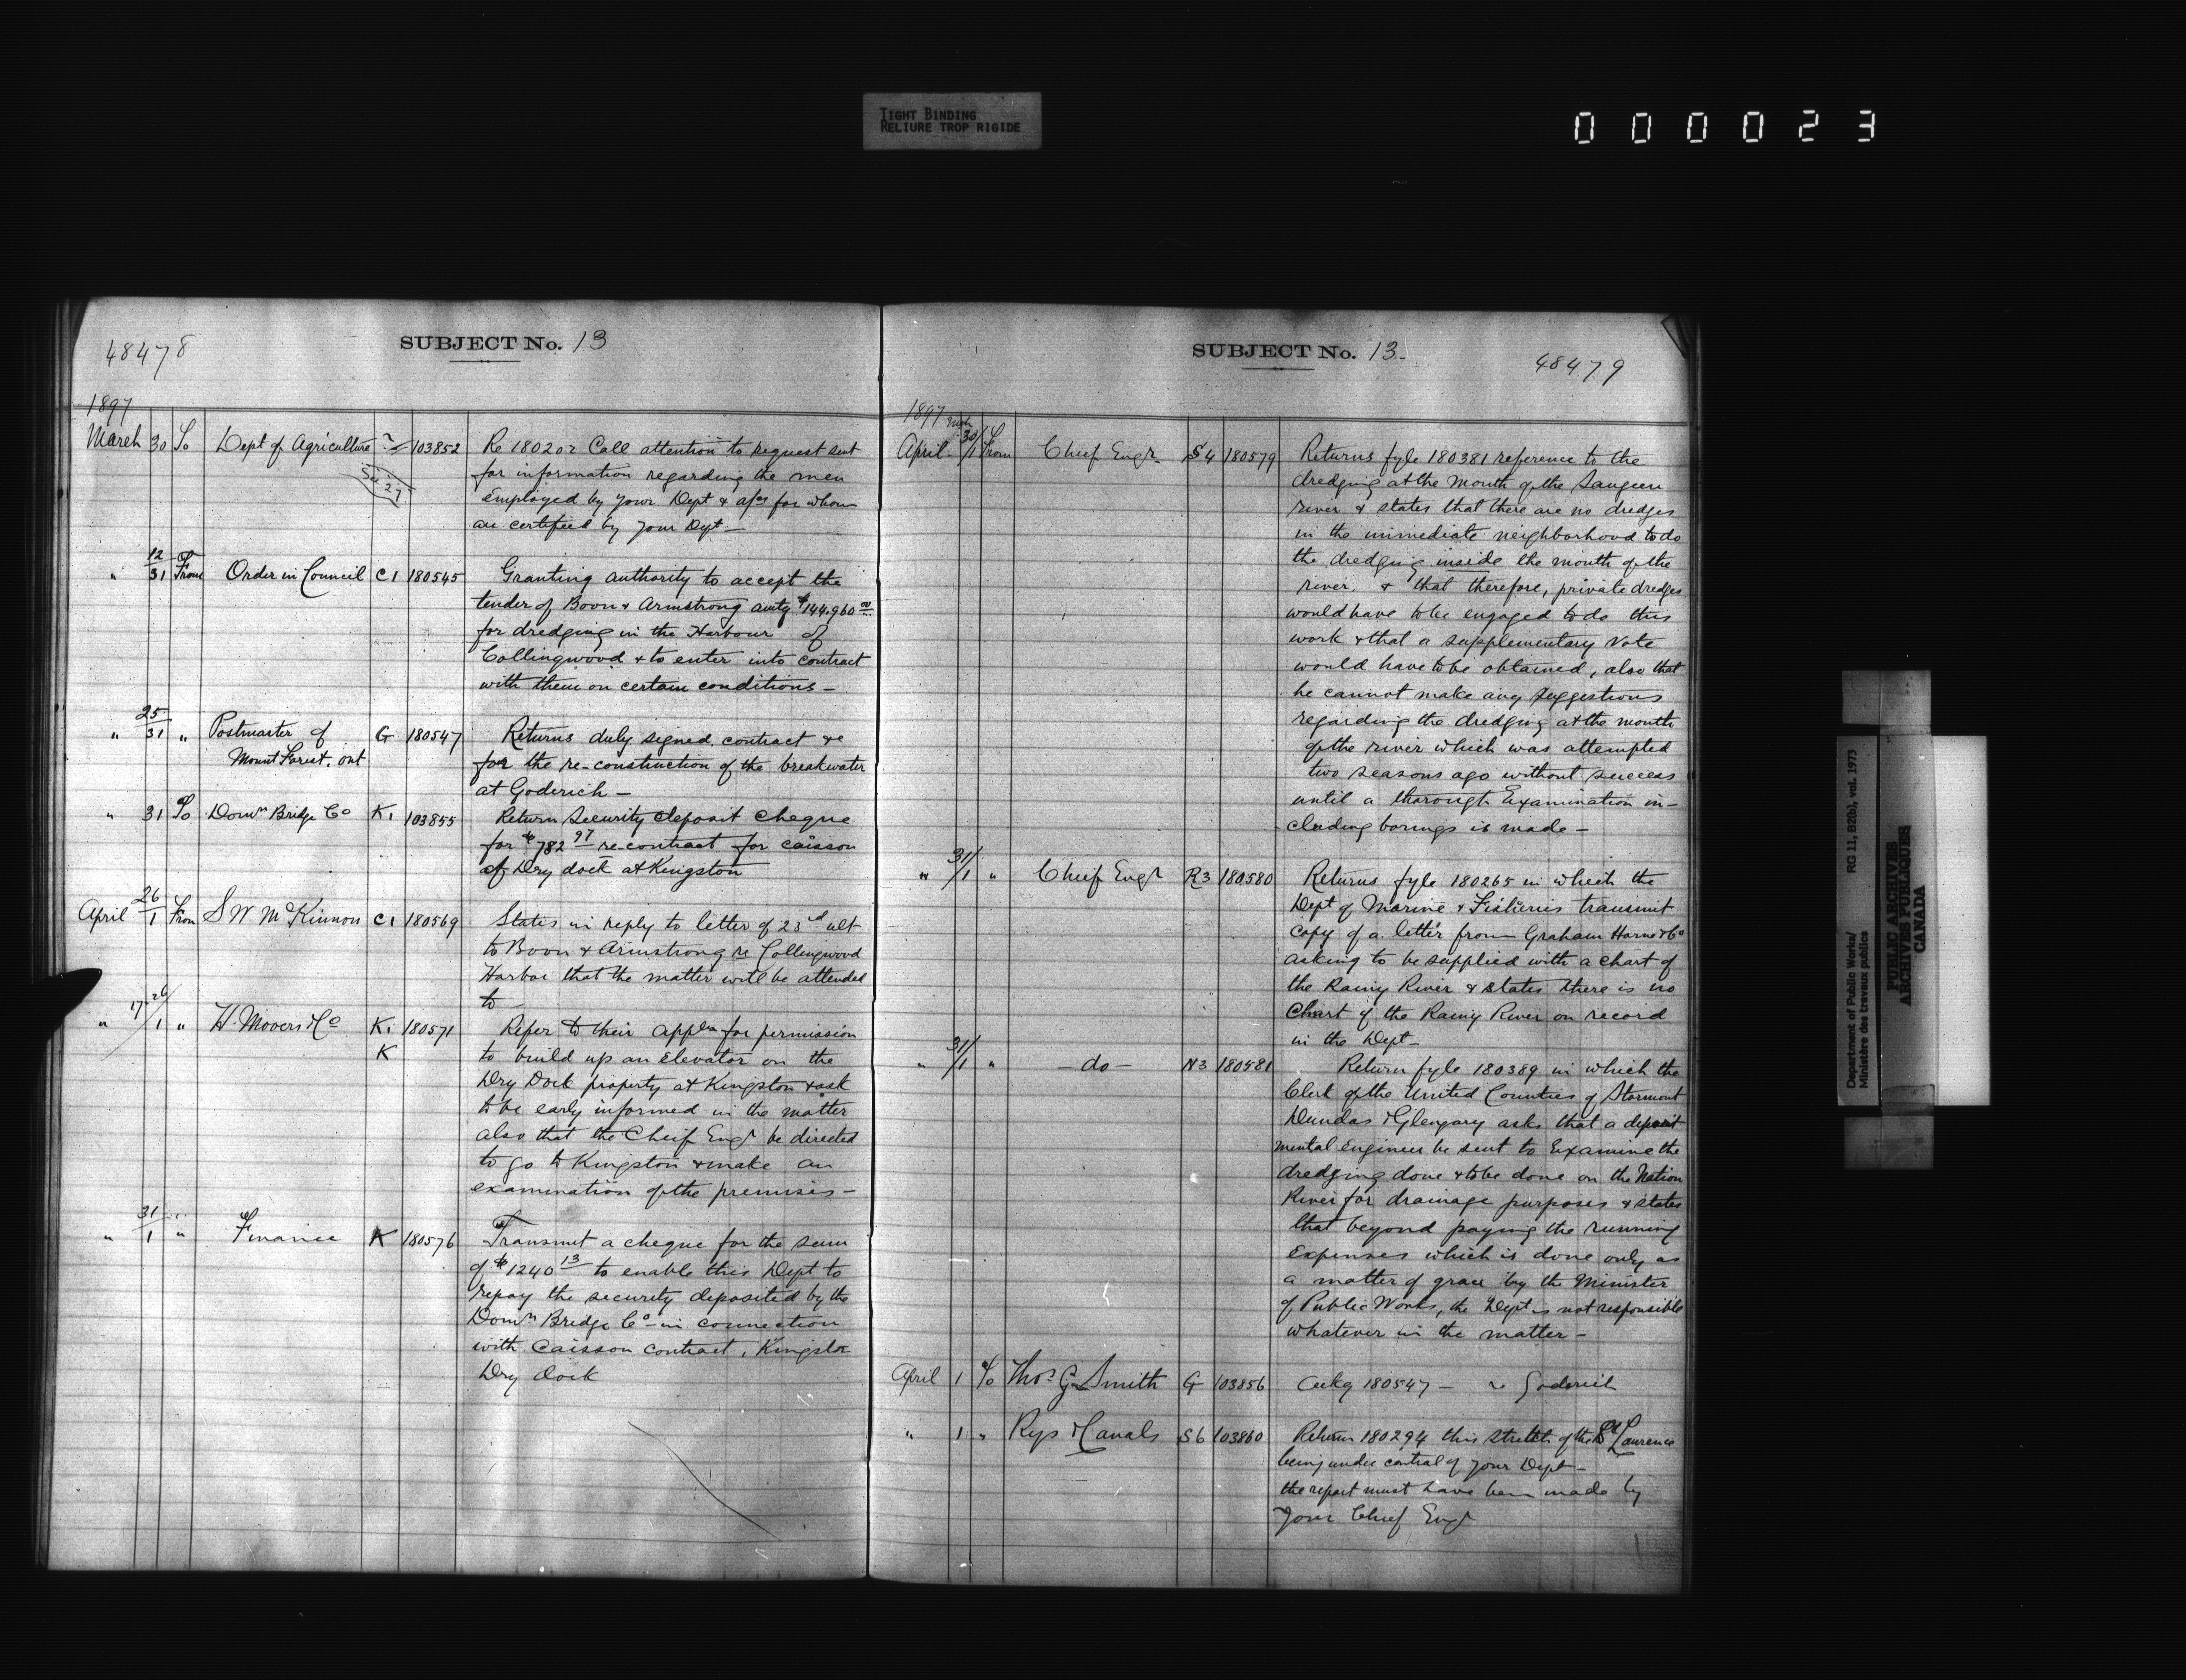 TIGHT BINDING
RELIURE TROP RIGIDE
000023
48478
SUBJECT No. 13
1897
March 30 To Dept of Agriculture 103852 Re 180202 Call attention to request sent
for information regarding the men
See 27
employed by your Dept & a/cs for whom
are certified by your Dept —
" 12/31 From Order in Council C1 180545 Granting authority to accept the
tender of Boon & Armstrong amtg $144.960 00
for dredging in the Harbour of
Collingwood & to enter into contract
with them on certain conditions —
" 25/31 " Postmaster of G 180547 Returns duly signed contract re
Mount Forest, Ont for the re-construction of the breakwater
at Goderich —
" 31 To Domn Bridge Co K1 103855 Return Security deposit cheque
for $782 97 re contract for caisson
of Dry dock at Kingston
April 26/1 From S W McKinnon C1 180569 States in reply to letter of 23rd ult
to Boon & Armstrong re Collingwood
Harbor that the matter will be attended
to —
" 17-26/1 " H. Moovers & Co K1 180571 Refer to their appln for permission
K to build up an Elevator on the
Dry Dock property at Kingston & ask
to be early informed in the matter
also that the Cheif Engr be directed
to go to Kingston & make an
examination of the premises —
" 31/1 " Finance K 180576 Transmit a cheque for the sum
of $1240 13 to enable this Dept to
repay the security deposited by the
Domn Bridge Co — in connection
with Caisson contract, Kingston
Dry dock
SUBJECT No. 13-
48479
1897
April 30/1 From Cheif Engr S4 180579 Returns fyle 180381 reference to the
dredging at the Mouth of the Saugeen
river & states that there are no dredges
in the immediate neighborhood to do
the dredging inside the mouth of the
river. & that therefore, private dredges
would have to be engaged to do this
work & that a supplementary vote
would have to be obtained, also that
he cannot make any suggestions
regarding the dredging at the mouth
of the river which was attempted
two seasons ago without success
until a thorough Examination in-
cluding borings is made —
" 31/1 " Cheif Engr R3 180580 Returns fyle 180265 in which the
Dept of Marine & Fisheries transmit
copy of a letter from Graham Horne & Co
asking to be supplied with a chart of
the Rainy River & states there is no
Chart of the Rainy River on record
in the Dept —
" 31/1 " — do — N3 180581 Return fyle 180389 in which the
Clerk of the United Counties of Stormont
Dundas & Glengary asks that a depart
mental Engineer be sent to Examine the
dredging done & to be done on the Nation
River for drainage purposes & states
that beyond paying the running
Expenses which is done only as
a matter of grace by the Minister
of Public Works, the Dept is not responsible
whatever in the matter —
April 1 To Thos G Smith G 103856 Ackg 180547 — re Goderich
" 1 " Rys & Canals S6 103860 Return 180294 this stretch of the St Laurence
being under control of your Dept —
the report must have been made by
Your Chief Engr
Department of Public Works/ RG 11, B2(b), vol. 1973
Ministère des travaux publics
PUBLIC ARCHIVES
ARCHIVES PUBLIQUES
CANADA